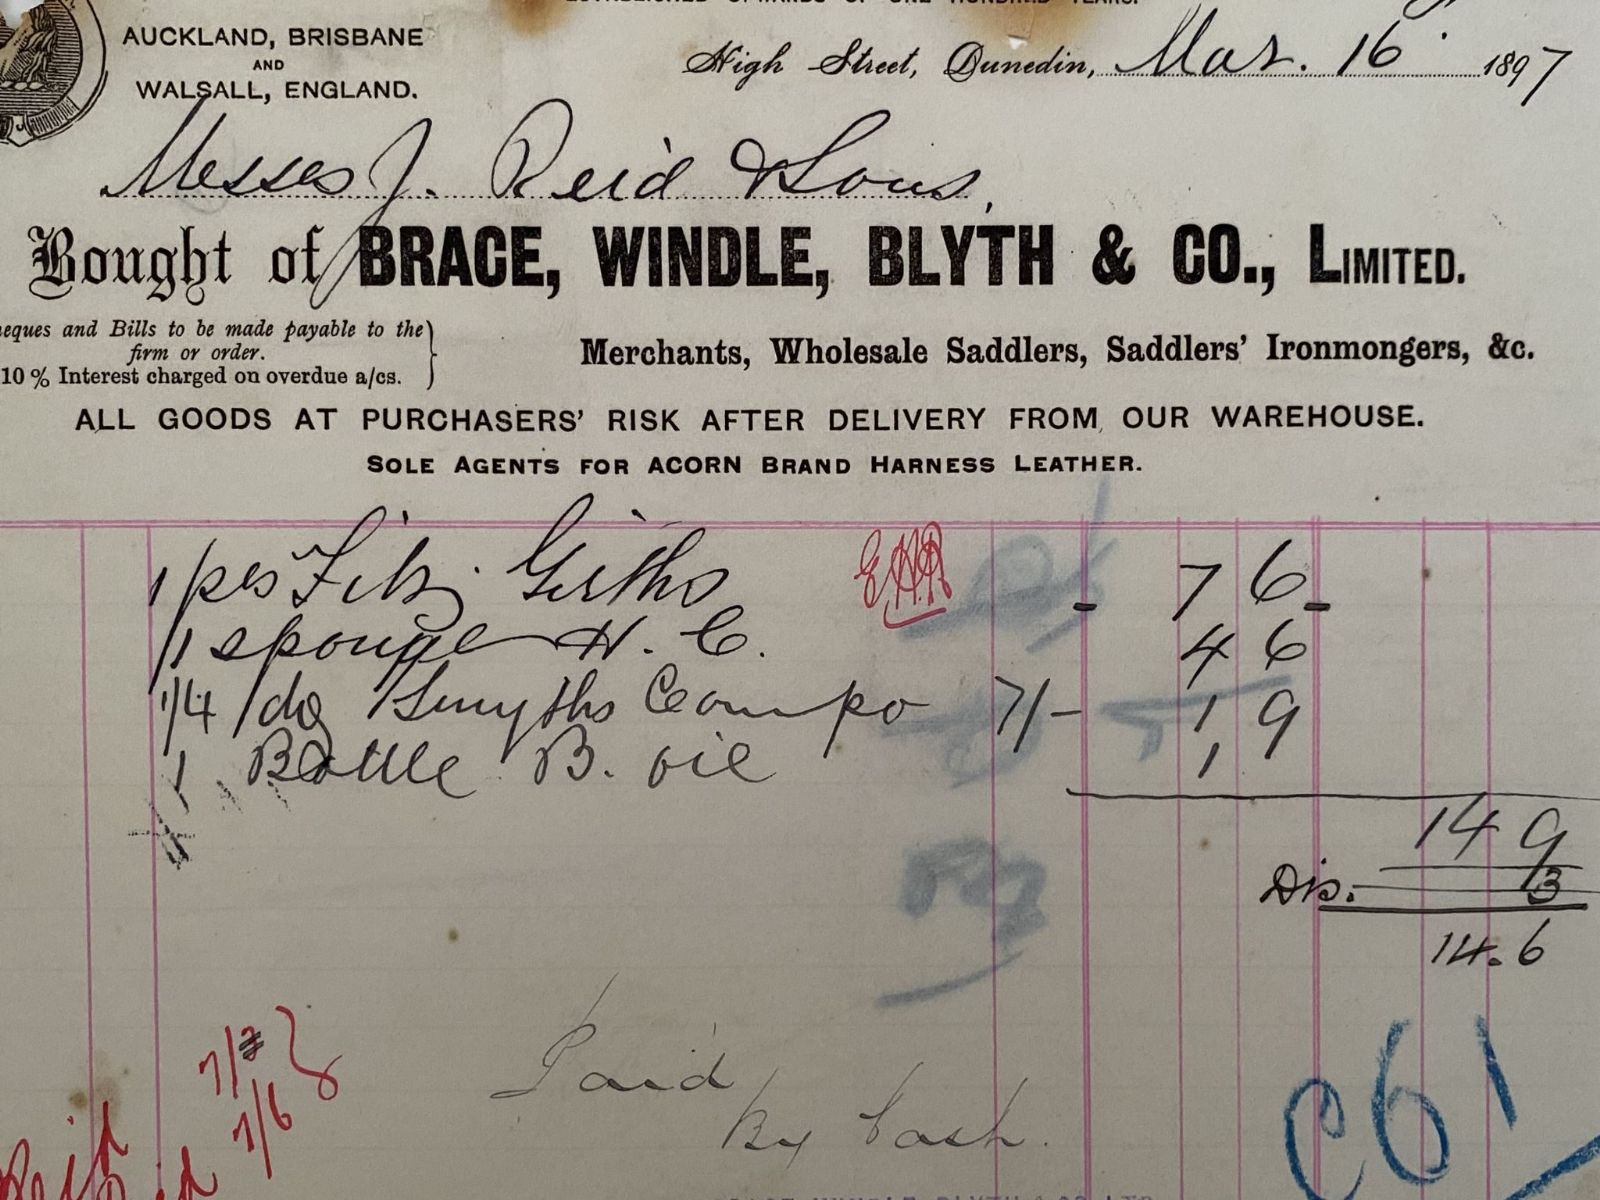 ESTABLISHED UPWARDS OF ONE HUNDRED YEARS.
AUCKLAND, BRISBANE
AND
WALSALL, ENGLAND.
High Street, Dunedin, Mar. 16 1897
Messrs J. Reid & Sons,
Bought of BRACE, WINDLE, BLYTH & CO., LIMITED.
eques and Bills to be made payable to the
firm or order.
10 % Interest charged on overdue a/cs.
Merchants, Wholesale Saddlers, Saddlers' Ironmongers, &c.
ALL GOODS AT PURCHASERS' RISK AFTER DELIVERY FROM OUR WAREHOUSE.
SOLE AGENTS FOR ACORN BRAND HARNESS LEATHER.
1 pes Fitz. Girths EHR - 7 6 -
1 sponge H. C. 4 6
1/4 dz Smyths Compo 7/- 1 9
1 Bottle B. oil 1
14 9
Dis. 3
14.6
7/3
7/6
Paid
By Cash.
C61
Reid